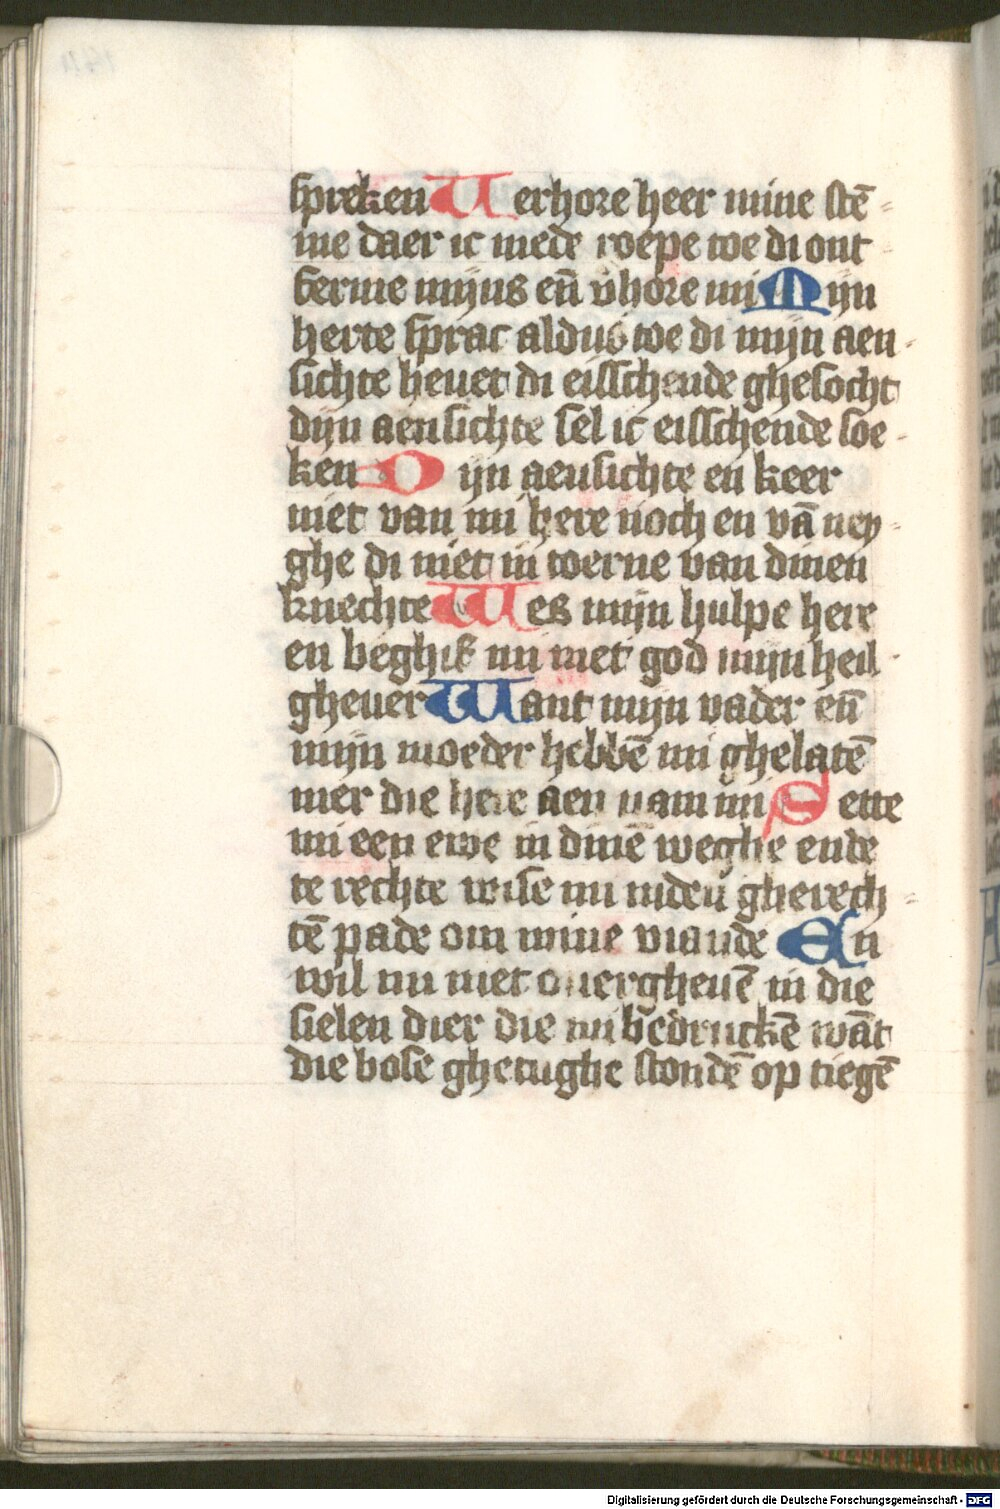 spreken Uerhore heer mine stē=
me daer ic mede roepe toe di ont
ferme mijns eñ v̄hore mi Mijn
herte sprac aldus toe di mijn aen-
sichte heuet di eisschende ghesocht
dijn aensichte sel ic eisschende soe-
ken Dijn aensichte en keer
niet van mi here noch en vā ney=
ghe di niet in toerne van dinen
knechte Wes mijn hulpe here
en beghif mi niet god mijn heil-
gheuer Want mijn vader eñ
mijn moeder hebbē mi ghelatē
mer die here aen nam mi Sette
mi een ewe in dinē weghe ende
te rechte wise mi inden gherech=
tē pade om mine viande En
wil mi niet ouergheuē in die
sielen dier die mi bedruckē wāt
die bose ghetughe stondē op tiegē
Digitalisierung gefördert durch die Deutsche Forschungsgemeinschaft - DFG